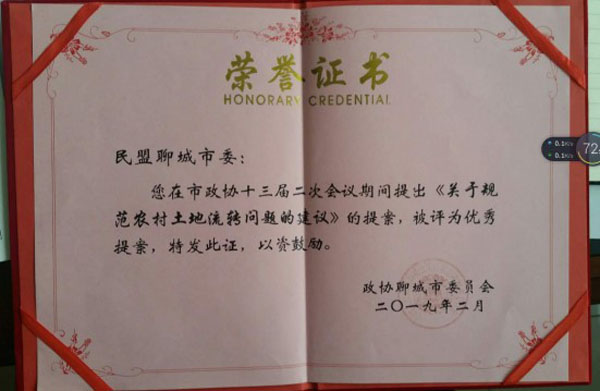 荣誉证书
HONORARY CREDENTIAL
民盟聊城市委：
您在市政协十三届二次会议期间提出《关于规
范农村土地流转问题的建议》的提案，被评为优秀
提案，特发此证，以资鼓励。
政协聊城市委员会
二〇一九年二月
0.1K/s
0.1K/s
72